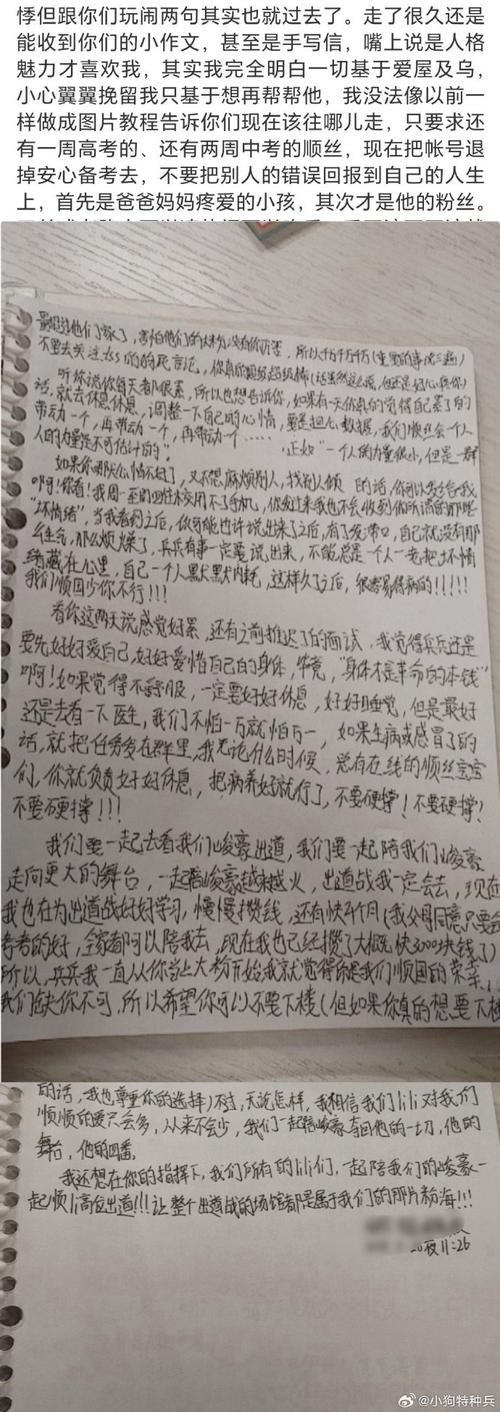 悸但跟你们玩闹两句其实也就过去了。走了很久还是
能收到你们的小作文，甚至是手写信，嘴上说是人格
魅力才喜欢我，其实我完全明白一切基于爱屋及乌，
小心翼翼挽留我只基于想再帮帮他，我没法像以前一
样做成图片教程告诉你们现在该往哪儿走，只要求还
有一周高考的、还有两周中考的顺丝，现在把帐号退
掉安心备考去，不要把别人的错误回报到自己的人生
上，首先是爸爸妈妈疼爱的小孩，其次才是他的粉丝。
所以千万千万千万(重要的事说三遍)
不要去关注
听你说你每天都很累，所以也想告诉你，如果有一天你真的觉得自己累了的
话，就去休息休息，调整一下自己的心情，要是担心数据，我们顺丝会一个人
带动一个，再带动一个，再带动一个……正如"一个人的力量很小，但是一群
人的力量是不可估计的"。
如果你哪天心情不好了，又不想麻烦别人，找别人倾 的话，你可以发给我
啊！你看！我周一至周四
"坏情绪"，当我看到之后，你可能也许说出来了之后，有了发泄口，自己就没有那
么生气，那么烦燥了，兵兵有事一定要说出来，不能总是一个人一老把坏情
绪藏在心里，自己一个人默默内耗，这样久了之后，很容易得病的！！！！！
我们顺国少你不行！！！
看你这两天说感觉好累，还有之前推迟了的面试，我觉得兵兵还是
要先好好爱自己，好好爱惜自己的身体，毕竟，"身体才是革命的本钱"
啊！如果觉得不舒服，一定要好好休息，好好睡觉，但是最好
还是去看一下医生，我们不怕一万就怕万一，如果生病或感冒了的
话，就把任务发在群里，我无论什么时候，总有在线的顺丝宝宝
们，你就负责好好休息，把病养好就行了，不要硬撑！不要硬撑！
不要硬撑！！！
我们要一起去看我们峻豪出道，我们要一起陪我们峻豪
走向更大的舞台，一起陪峻豪越来越火，出道战我一定会去，现在
我也在为出道战好好学习，慢慢攒钱，还有快4个月(我父母同意只要
考的好，全家都可以陪我去，现在我也已经攒了大概快3000块钱了)
所以，兵兵我一直从你当上大粉开始我就觉得你是我们顺国的荣幸，
我们缺你不可，所以希望你可以不要下楼(但如果你真的想要下楼
的话，我也尊重你的选择)不过，无论怎样，我相信我们lili对我们
顺顺的爱只会多，从来不会少，我们一起陪峻豪夺回他的一切，他的
舞台，他的四番。
我还想在你的指挥下，我们所有的lili们，一起陪我们的峻豪一
起顺li高位出道！！！让整个出道战的场馆都是属于我们的那片粉海！！！
11:26
@小狗特种兵